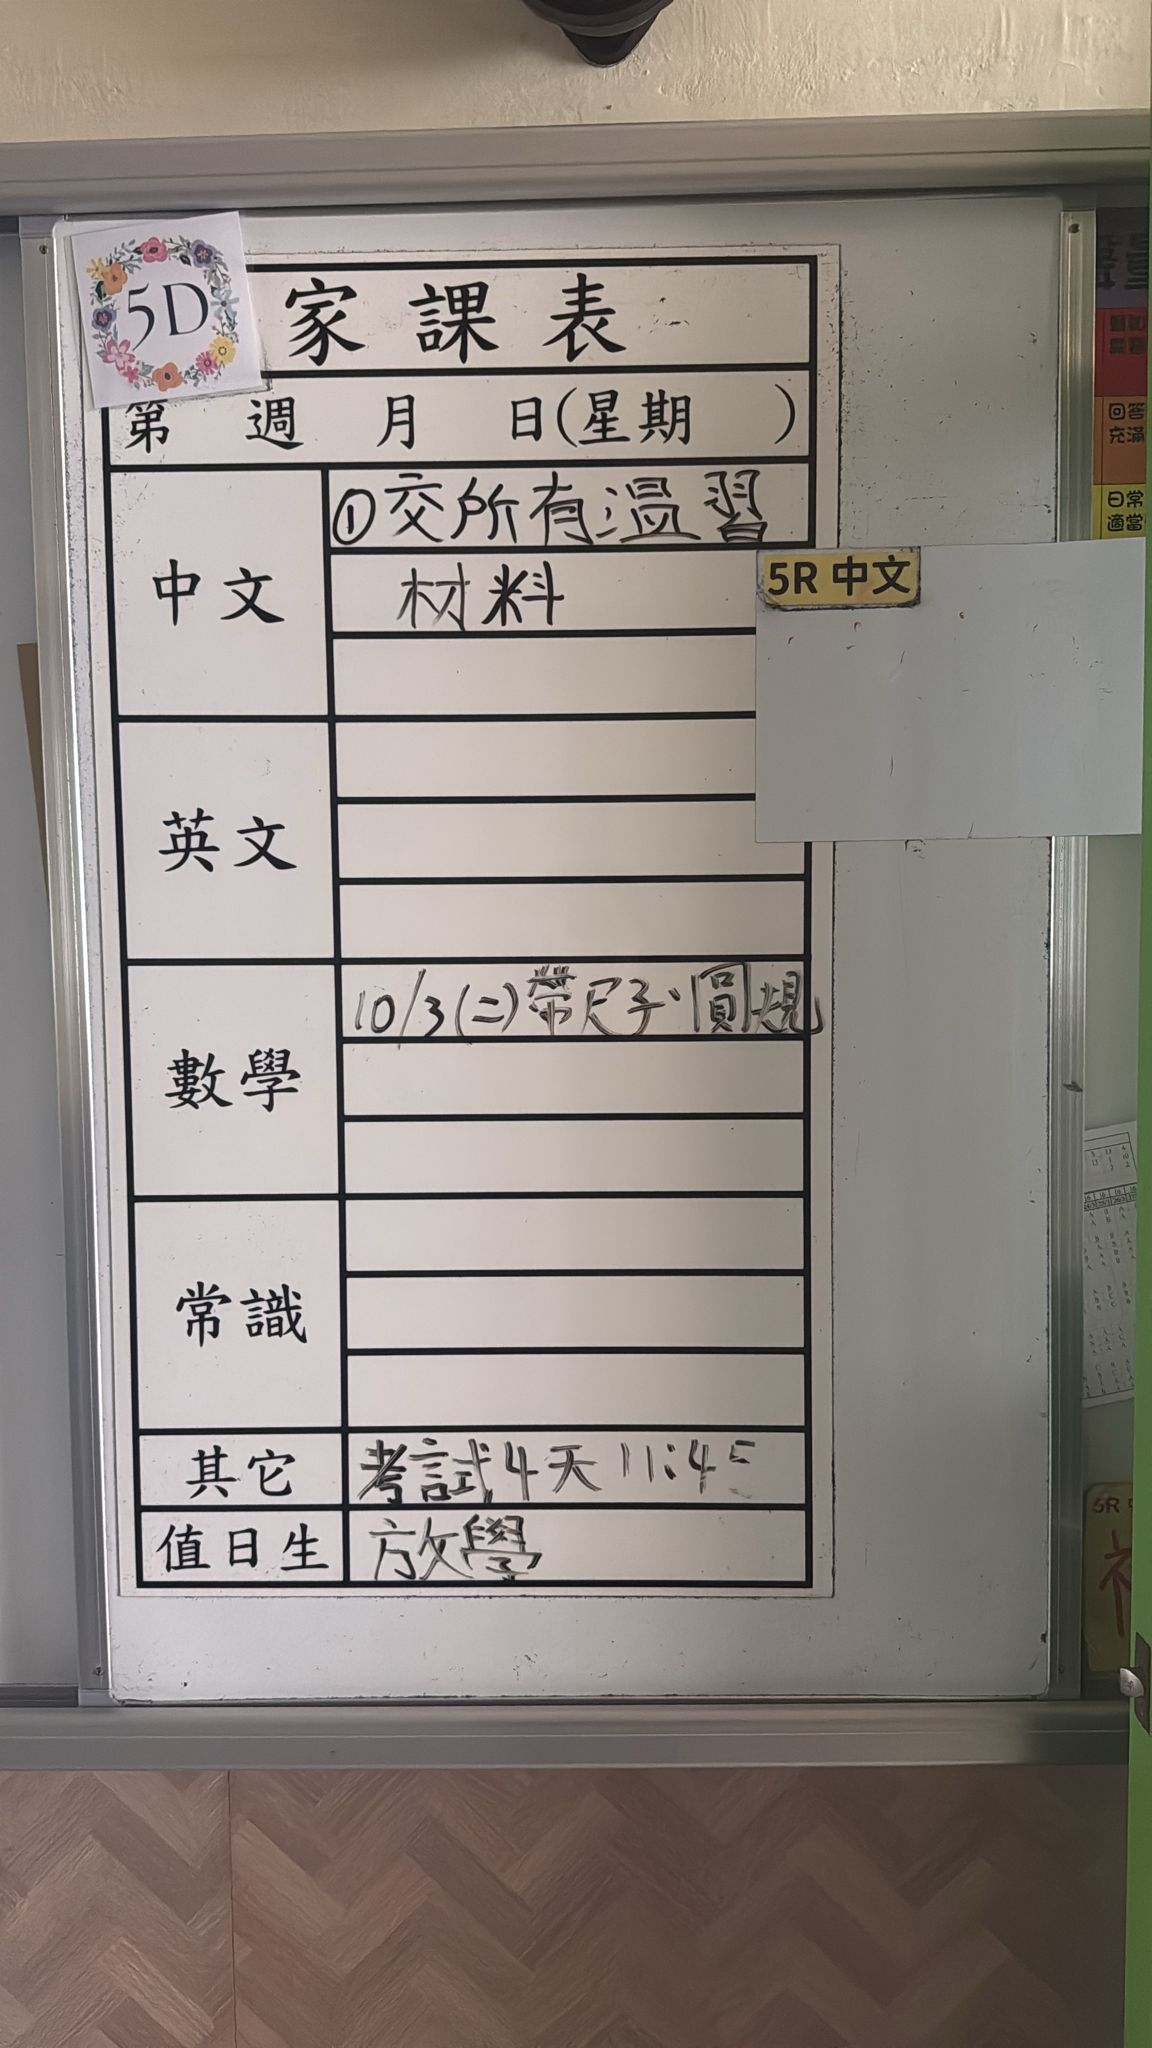 5D
家課表
第 週 月 日(星期 )
中文
①交所有溫習
材料
5R 中文
英文
數學
10/3(二)帶尺子、圓規
常識
其它
考試4天 11:45
值日生
放學
回答
充滿
日常
適當
5R